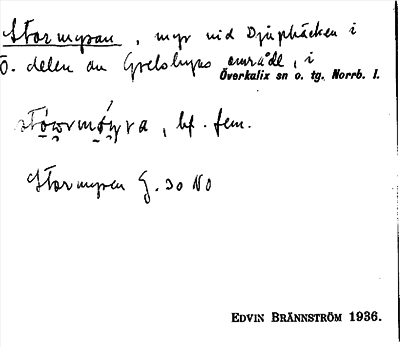 Stormyran, myr vid Djupbäcken i
ö. delen av Grelsbyns område, i
Överkalix sn o. tg. Norrb. l.
bf. fem.
Stormyren G. 30 NO
EDVIN BRÄNNSTRÖM 1936.